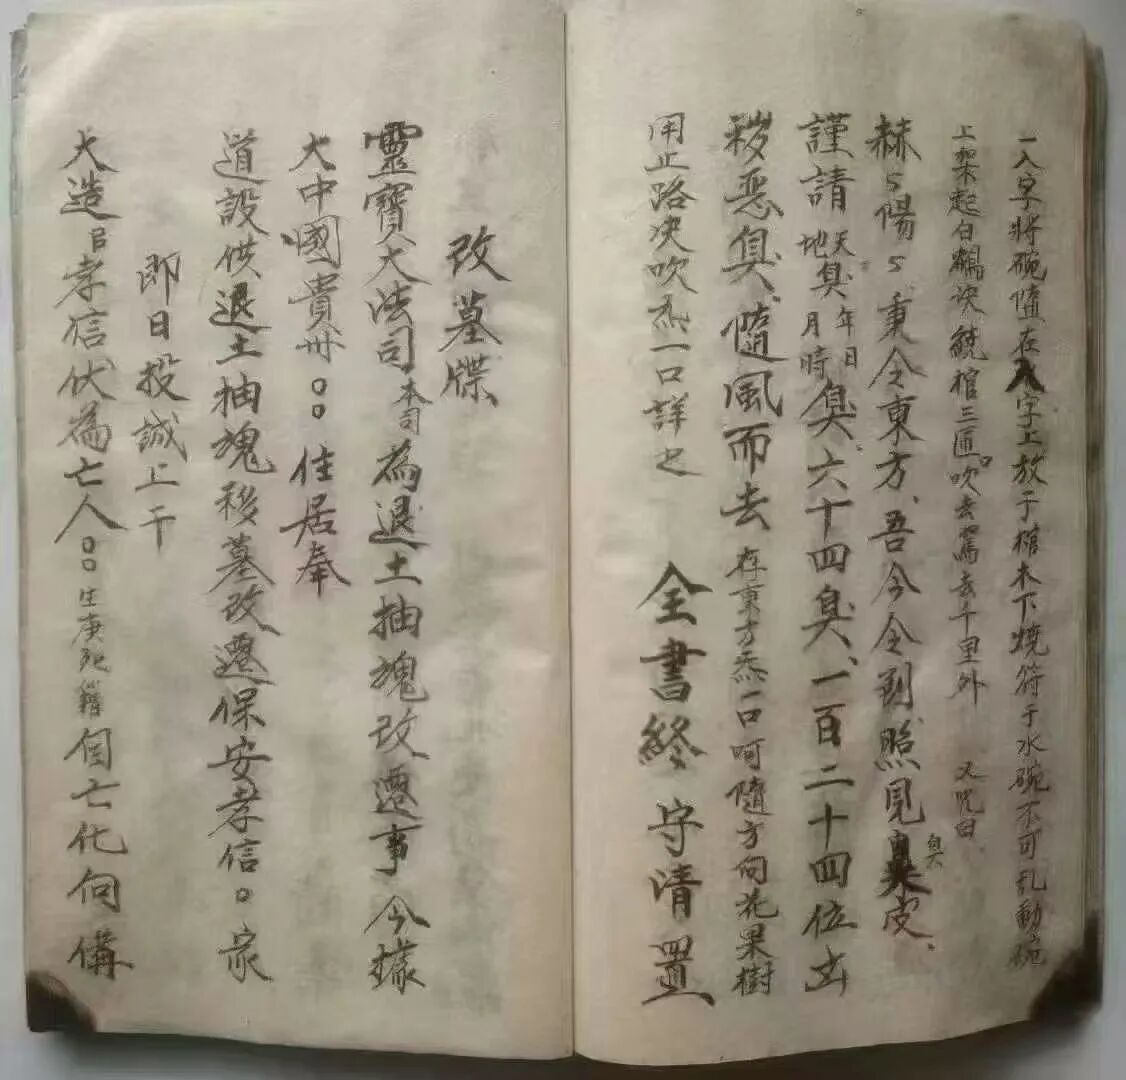 一入字將碗隨在入字上放于棺木下燒符于水碗不可乱動碗
上架起白鶴決繞棺三匝吹去駕去千里外 又咒曰
赫々陽々東令東方、吾今令到、照見臭皮、
謹請天地臭、年月日時臭、六十四臭、一百二十四位出
穢惡臭、隨風而去 存東方炁一口呵隨方向花果樹
用止路决吹炁一口詳之 全書終 守清置
改墓牒
靈寶大法司本司為退土抽塊改遷事 今據
大中國貴州○○住居奉
道設供退土抽塊移墓改遷保安孝信○家
即日投誠上干
大造 孝信伏為亡人○○生庚死籍 亡化向